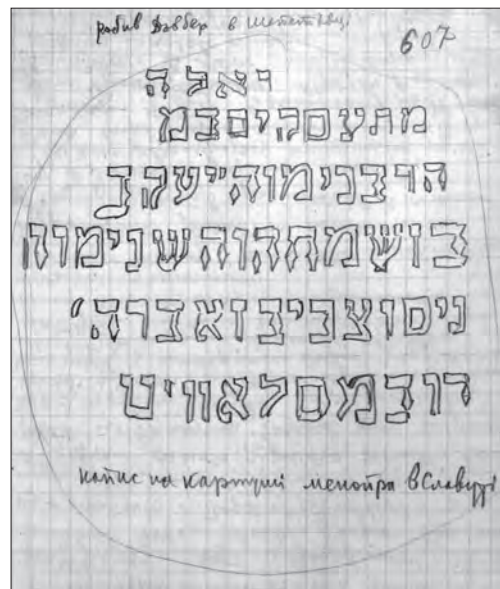 робив Давбер в Шепетівці
607
יאלה
מתעסקיםבמ
הרבנימוה״יעקב
בושמחהוהשנימוה
ניסוצביבזאברה׳
רובמסלאוויט
напис на картуші менойра в Славуті